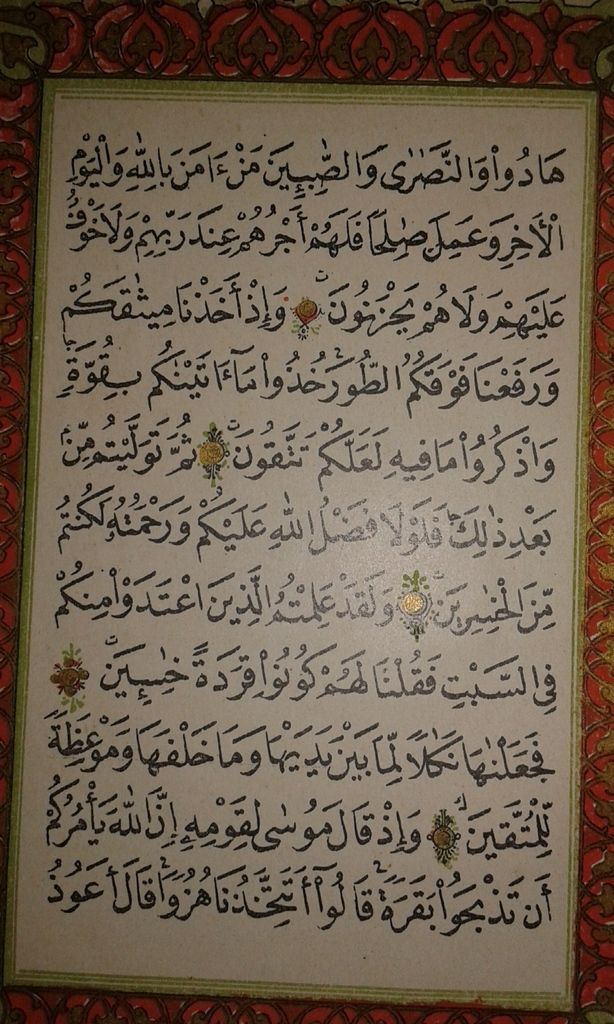 هَادُوا۟ وَالنَّصَٰرَىٰ وَالصَّٰبِـِٔينَ مَنْ ءَامَنَ بِاللَّهِ وَالْيَوْمِ
الْأَخِرِ وَعَمِلَ صَٰلِحًا فَلَهُمْ أَجْرُهُمْ عِندَ رَبِّهِمْ وَلَا خَوْفٌ
عَلَيْهِمْ وَلَا هُمْ يَحْزَنُونَ وَإِذْ أَخَذْنَا مِيثَٰقَكُمْ
وَرَفَعْنَا فَوْقَكُمُ الطُّورَ خُذُوا۟ مَآ ءَاتَيْنَٰكُم بِقُوَّةٍ
وَاذْكُرُوا۟ مَا فِيهِ لَعَلَّكُمْ تَتَّقُونَ ثُمَّ تَوَلَّيْتُم مِّنۢ
بَعْدِ ذَٰلِكَ فَلَوْلَا فَضْلُ اللَّهِ عَلَيْكُمْ وَرَحْمَتُهُ لَكُنتُم
مِّنَ الْخَٰسِرِينَ وَلَقَدْ عَلِمْتُمُ الَّذِينَ اعْتَدَوْا۟ مِنكُمْ
فِي السَّبْتِ فَقُلْنَا لَهُمْ كُونُوا۟ قِرَدَةً خَٰسِـِٔينَ
فَجَعَلْنَٰهَا نَكَٰلًا لِّمَا بَيْنَ يَدَيْهَا وَمَا خَلْفَهَا وَمَوْعِظَةً
لِّلْمُتَّقِينَ وَإِذْ قَالَ مُوسَىٰ لِقَوْمِهِ إِنَّ اللَّهَ يَأْمُرُكُمْ
أَن تَذْبَحُوا۟ بَقَرَةً قَالُوٓا۟ أَتَتَّخِذُنَا هُزُوًا قَالَ أَعُوذُ